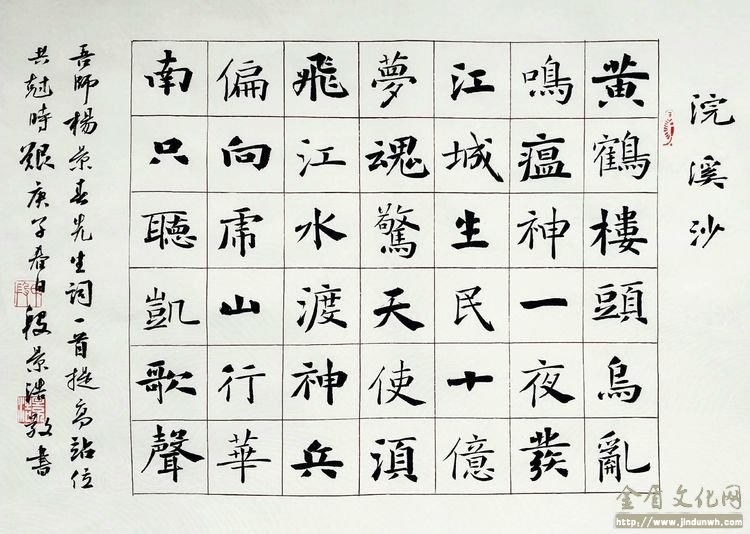 浣溪沙
黄鶴樓頭烏亂
鳴瘟神一夜發
江城生民十億
夢魂驚天使湏
飛江水渡神兵
偏向虎山行華
南只聽凱歌聲
吾師楊景春先生詞一首提高站位
共尅時艱庚子春日段景浩敬書
金盾文化网
http://www.jindunwh.com